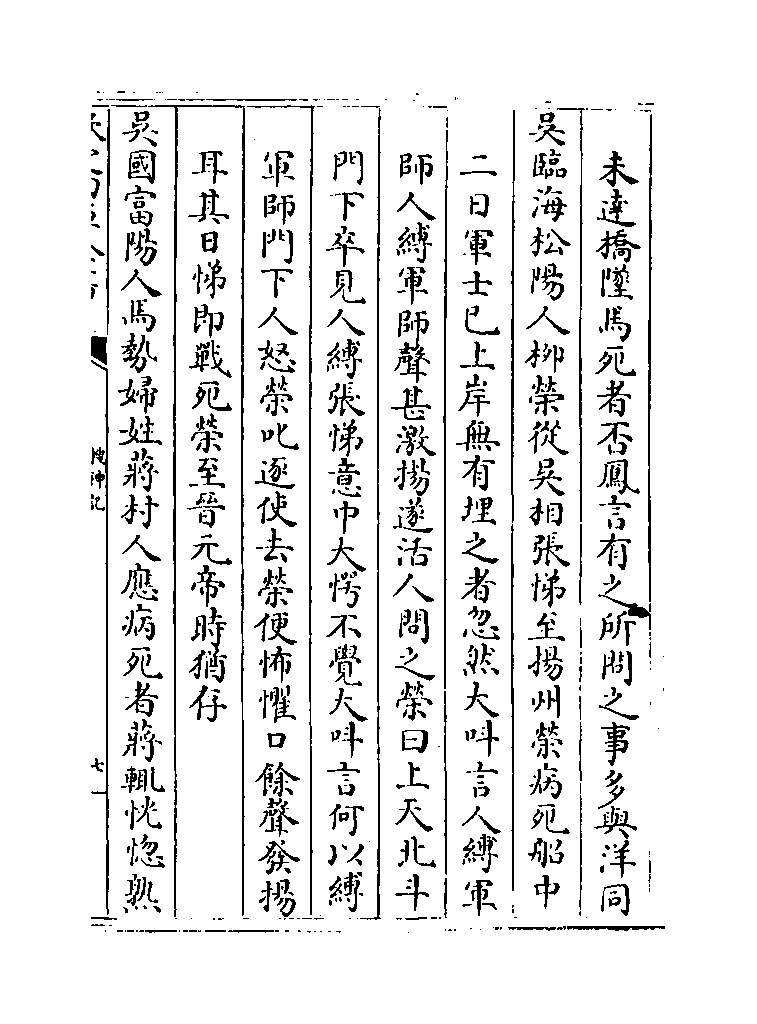 未達橋墜馬死者否鳳言有之所問之事多與洋同
吳臨海松陽人柳榮從吳相張悌至揚州榮病死船中
二日軍士已上岸無有埋之者忽然大呌言人縛軍
師人縛軍師聲甚激揚遂活人問之榮曰上天北斗
門下卒見人縛張悌意中大愕不覺大呌言何以縛
軍師門下人怒榮叱逐使去榮便怖懼口餘聲發揚
耳其日悌即戰死榮至晉元帝時猶存
吳國富陽人馬勢婦姓蔣村人應病死者蔣輒恍惚熟
搜神記
七